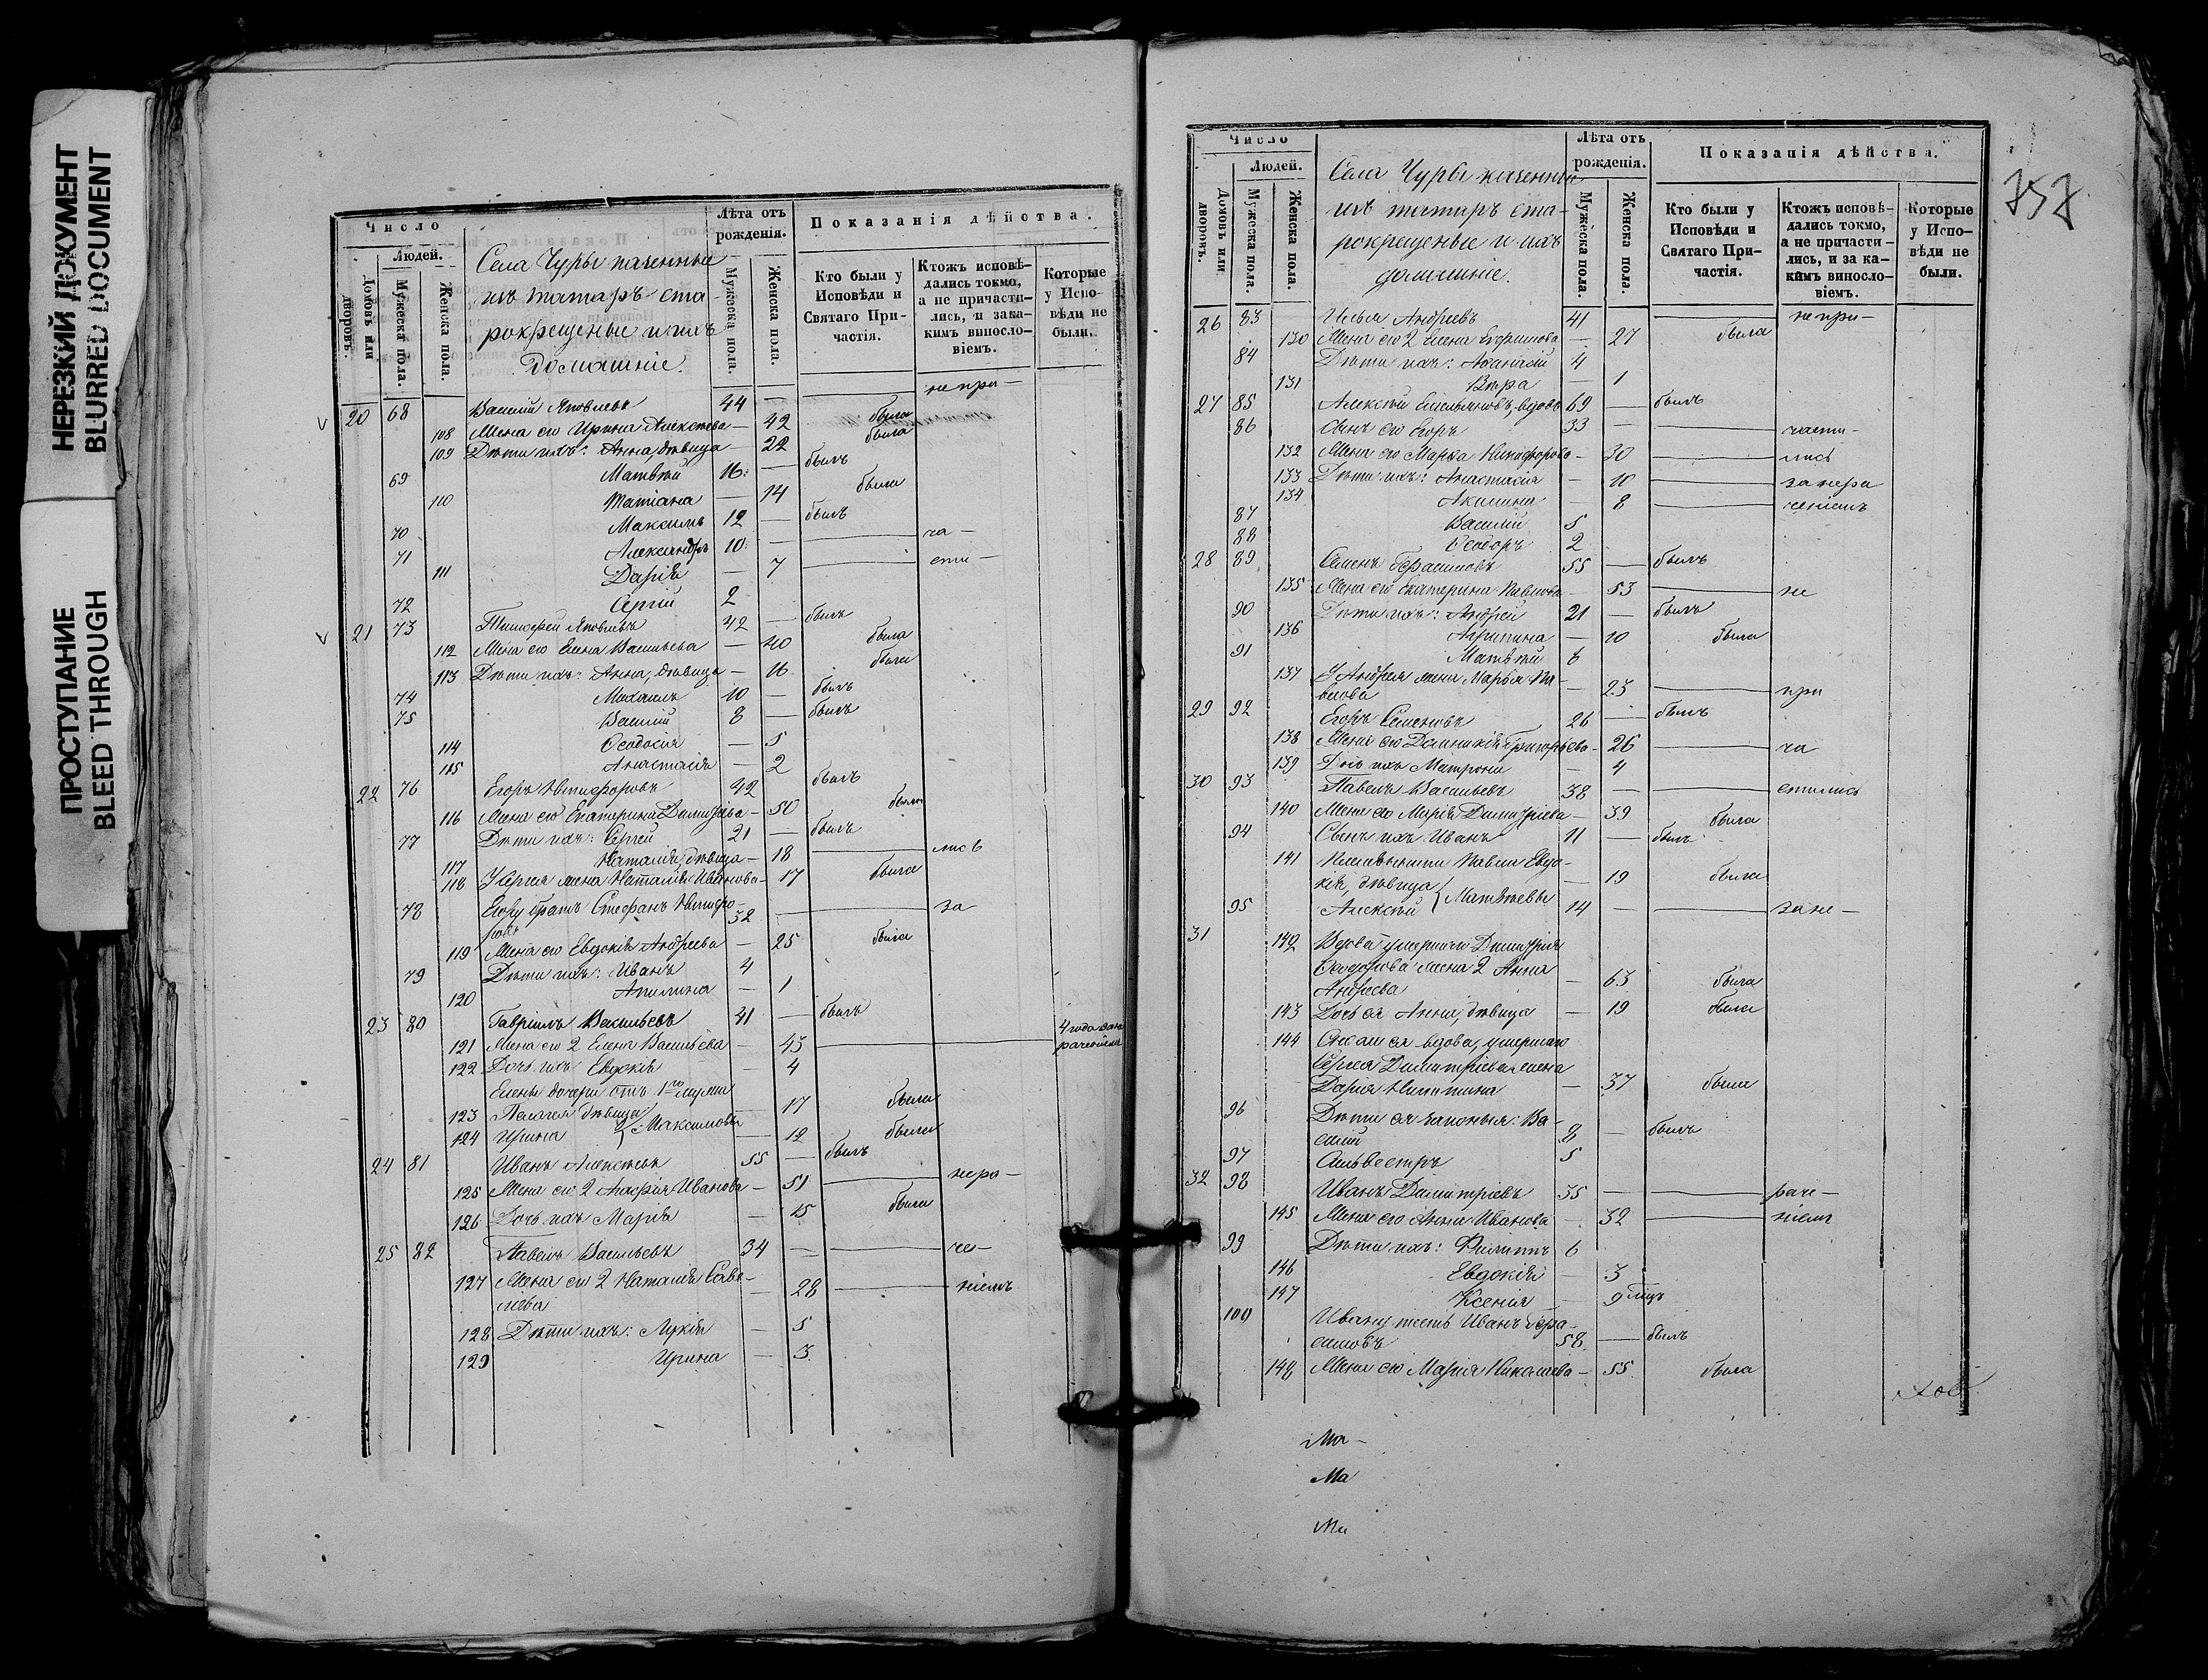 НЕРЕЗКИЙ ДОКУМЕНТ
BLURRED DOCUMENT
ПРОСТУПАНИЕ
BLEED THROUGH
Число
Людей.
Домовъ или дворовъ.
Мужеска пола.
Женска пола.
Села Чуры казенные
изъ татаръ ста-
рокрещеные и ихъ
домашніе.
Лѣта отъ рожденія.
Мужеска пола.
Женска пола.
Показанія дѣйства.
Кто были у Исповѣди и Святаго При-частія.
Ктожъ исповѣ-дались токмо, а не причасти-лись, и за ка-кимъ виносло-віемъ.
Которые у Испо-вѣди не были.
20 68 Василій Яковлевъ 44 — непри-
108 Жена его Ирина Алексѣева — 42 была
109 Дѣти ихъ: Анна, дѣвица — 22 была
69 Матвѣй 16 — былъ
110 Татіана — 14 была
70 Максимъ 12 — былъ
71 Александръ 10 — ча-
111 Дарія — 7 сти-
72 Сергій 2
21 73 Тимофей Яковлевъ 42 — былъ
112 Жена его Елена Васильева — 40 была
113 Дѣти ихъ: Анна, дѣвица — 16 была
74 Михаилъ 10 — былъ
75 Василій 8 — былъ
114 Ѳеодосія — 5
115 Анастасія — 2
22 76 Егоръ Никифоровъ 42 былъ
116 Жена его Екатерина Димитріева — 50 была
77 Дѣти ихъ: Сергей 21 — былъ
117 Наталія, дѣвица — 18 лись
118 У Сергея жена Наталія Иванова — 17 была
78 Егору братъ Стефанъ Никифо-
ровъ 32 — за
119 Жена его Евдокія Андреева — 25 была
79 Дѣти ихъ: Иванъ 4
120 Акилина — 1
23 80 Гавріилъ Васильевъ 41 — былъ
121 Жена его 2 Елена Васильева — 43 4 года
122 Дочь ихъ Евдокія — 4
Елены дочери отъ 1го мужа
123 Пелагея дѣвица — 17 была
124 Ирина } Максимовы — 12 была
24 81 Иванъ Алексѣевъ 55 — былъ
125 Жена его 2 Иванова — 51 нера-
126 Дочь ихъ Марія — 15 была
25 82 Павелъ Васильевъ 34 — че-
127 Жена его 2 Наталія Саве-
лієва — 28 ніемъ
128 Дѣти ихъ: Лукія — 5
129 Ирина — 3
757
Число
Людей.
Домовъ или дворовъ.
Мужеска пола.
Женска пола.
Села Чуры казенные
изъ татаръ ста-
рокрещеные и ихъ
домашніе.
Лѣта отъ рожденія.
Мужеска пола.
Женска пола.
Показанія дѣйства.
Кто были у Исповѣди и Святаго При-частія.
Ктожъ исповѣ-дались токмо, а не причасти-лись, и за ка-кимъ виносло-віемъ.
Которые у Испо-вѣди не были.
26 83 Илья Андреевъ 41 непри-
130 Жена его 2 Елена Ефимова — 27 была
84 Дѣти ихъ: Аѳанасій 4
131 Вѣра — 1
27 85 Алексѣй Емельяновъ, вдовъ 69 — былъ
86 Сынъ его Егоръ 33 — части-
132 Жена его Марѳа Никифорова — 30 лись
133 Дѣти ихъ: Анастасія — 10 за нера
134 Акилина — 8 ченіемъ
87 Василій 5
88 Ѳеодоръ 2
28 89 Семенъ Герасимовъ 55 — былъ
135 Жена его Екатерина Павлова — 53 не
90 Дѣти ихъ: Андрей 21 — былъ
136 Агрипина — 10 была
91 Матвѣй 8
137 У Андрея жена Марья Па-
влова — 23 при
29 92 Егоръ Семеновъ 26 — былъ
138 Жена его Домникія Григорьева — 26 ча
139 Дочь ихъ Матрона — 4
30 93 Павелъ Васильевъ 38 — стились
140 Жена его Марія Димитріева — 39 была
94 Сынъ ихъ Иванъ 11 — былъ
141 Племянники Павла Евдо-
кія, дѣвица — 19 была
95 Алексѣй { Матвѣевы 14 — за не-
31 142 Вдова умершаго Димитрія
Ѳеодорова жена 2 Анна
Андреева — 63 была
143 Дочь ея Анна, дѣвица — 19 была
144 Сноха ея вдова, умершаго
Сергея Димитріева жена
Дарія Никитина — 37 была
96 Дѣти ея законныя: Ва-
силій 8 — былъ
97 Сильвестръ 5
32 98 Иванъ Димитріевъ 35 — раче-
145 Жена его Анна Иванова — 32 ніемъ
99 Дѣти ихъ: Филиппъ 6
146 Евдокія — 3
147 Ксенія — 9
100 Ивану тесть Иванъ Гера-
симовъ 58 — былъ
148 Жена его Марія Николаева — 55 была
Ма-
Ма
Ма